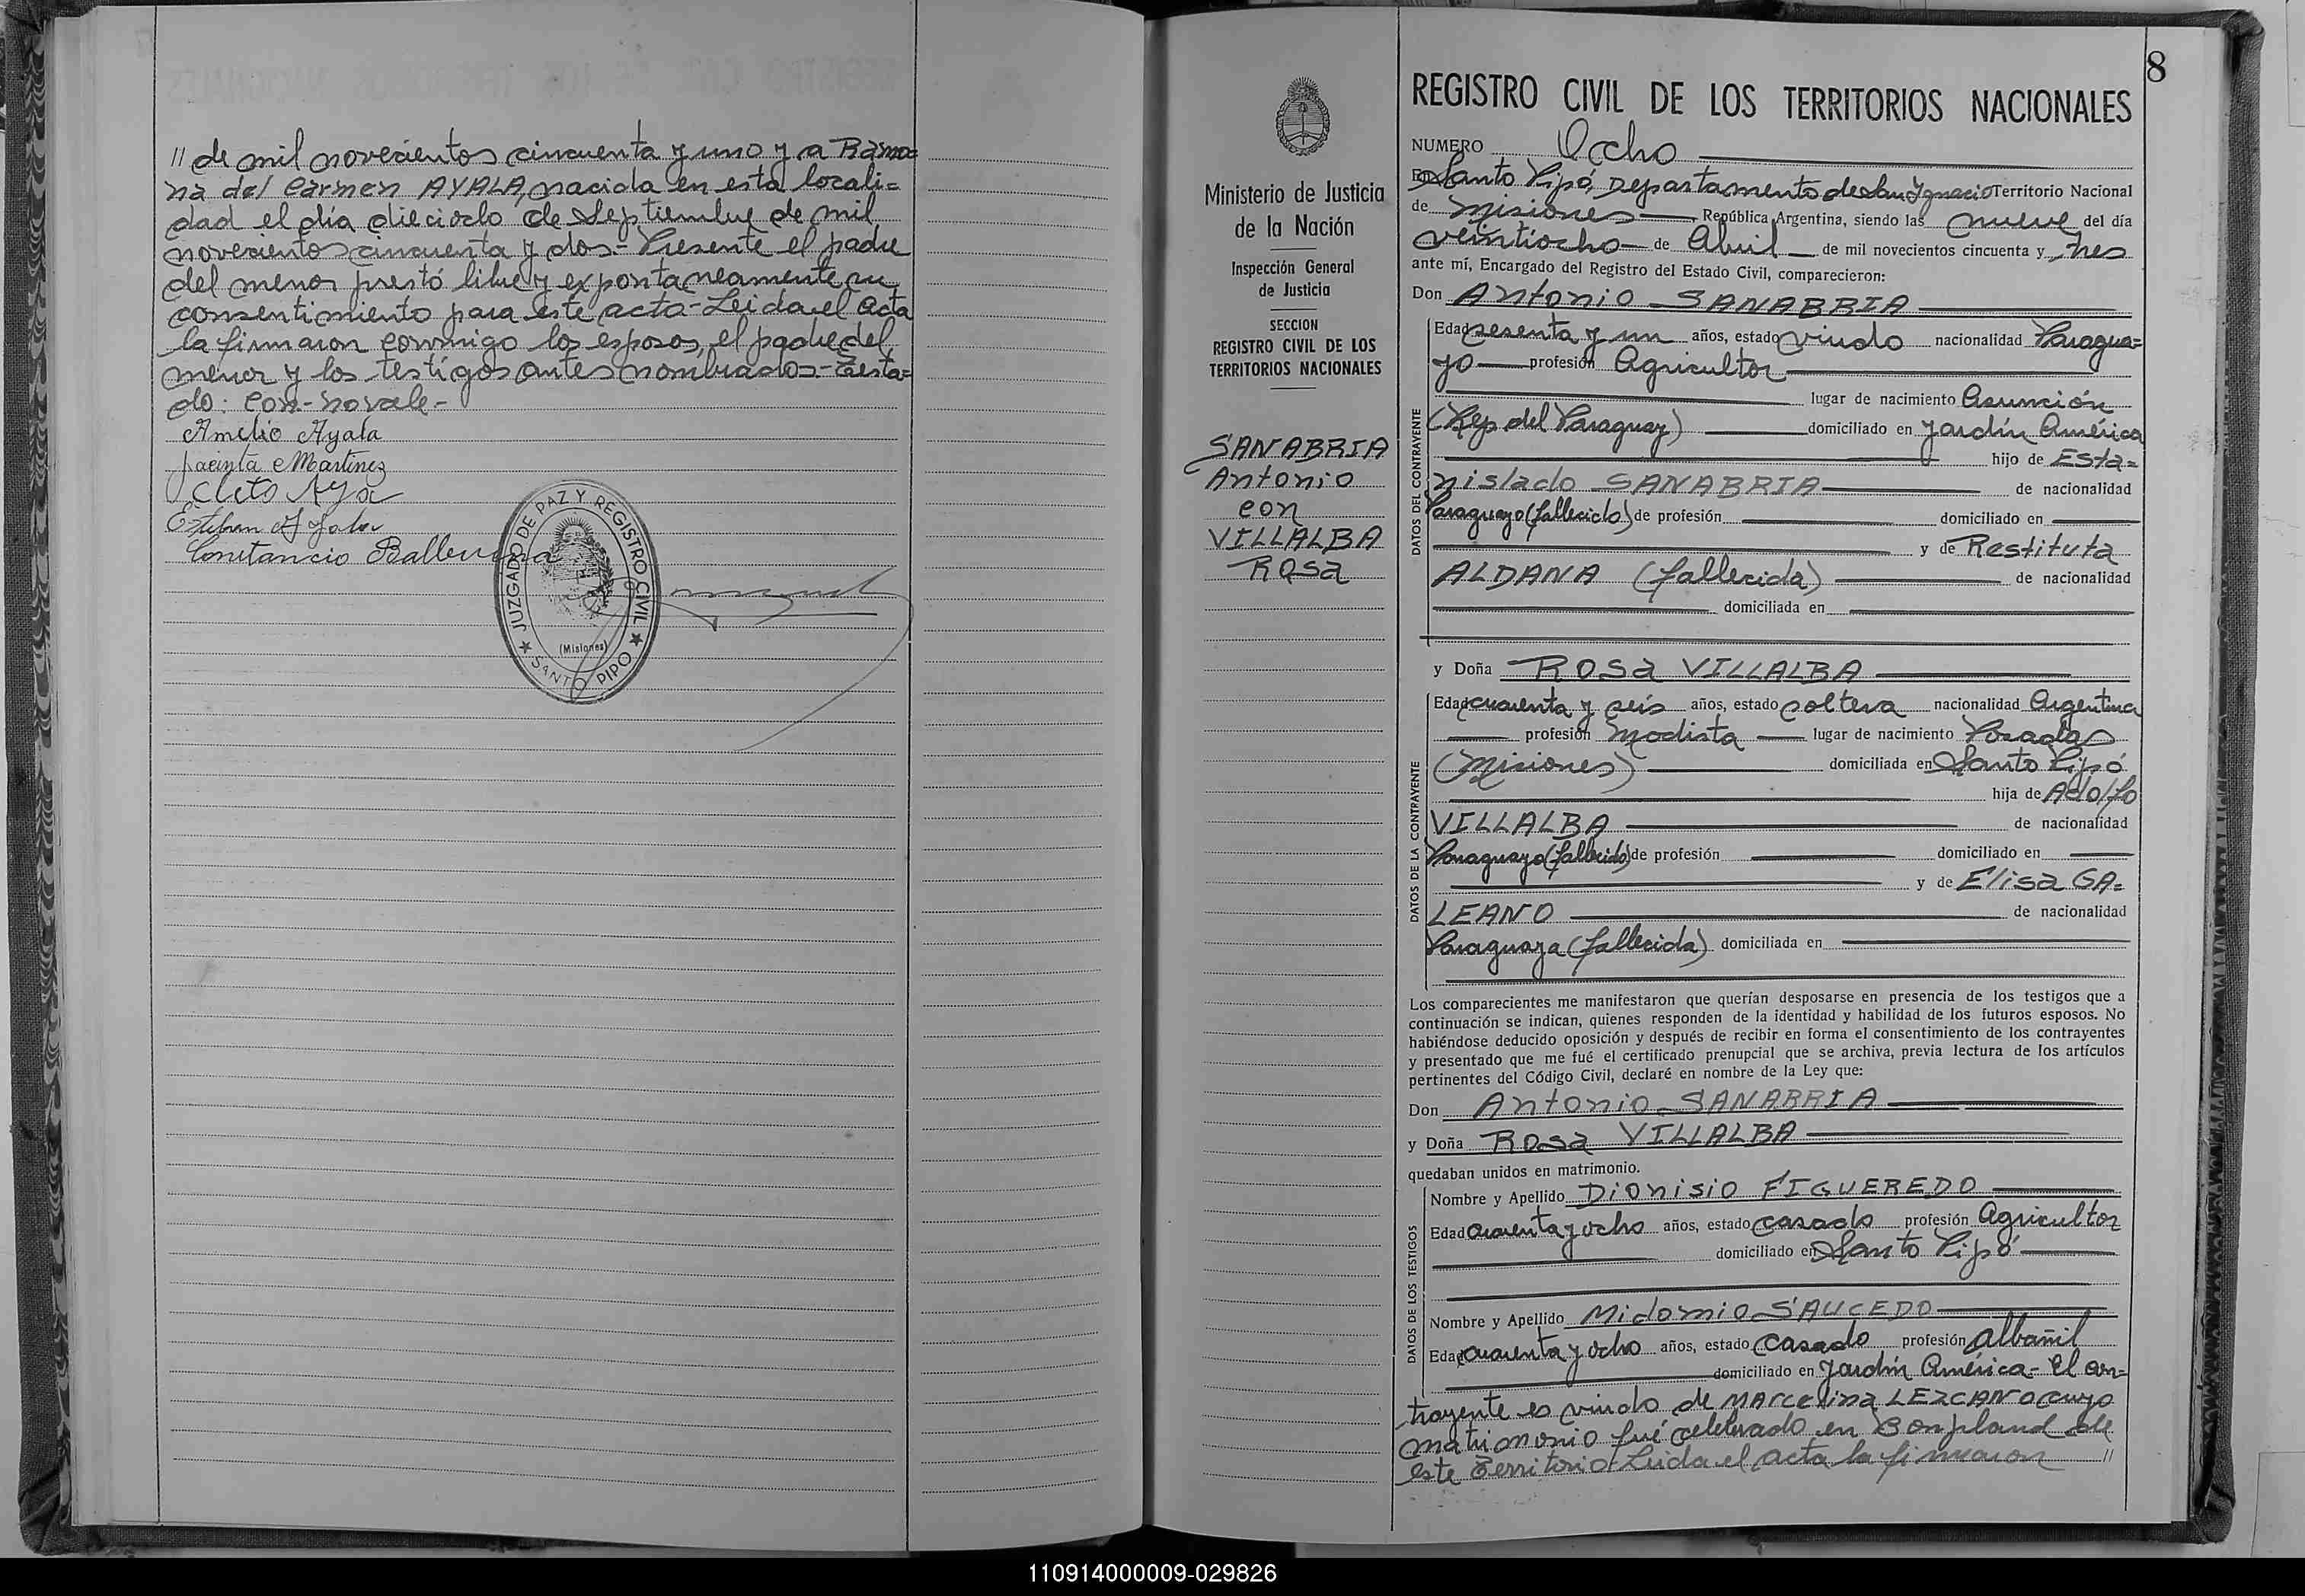 // de mil novecientos cincuenta y uno y a Ramo=
na del Carmen AYALA, nacida en esta locali=
dad el día dieciocho de Septiembre de mil
novecientos cincuenta y dos.- Presente el padre
del menor prestó libre y expontaneamente su
consentimiento para este acto- Leida el acta
la firmaron conmigo los esposos, el padre del
menor y los testigos antes nombrados.- Testa=
do: con- no vale-
Amelio Ayala
Jacinta Martinez
Cleto Aya
Esteban Ayala
Constancio Ballerina
JUZGADO DE PAZ Y REGISTRO CIVIL
(Misiones)
★ SANTO PIPO ★
Ministerio de Justicia
de la Nación
Inspección General
de Justicia
SECCION
REGISTRO CIVIL DE LOS
TERRITORIOS NACIONALES
SANABRIA
Antonio
con
VILLALBA
Rosa
8
REGISTRO CIVIL DE LOS TERRITORIOS NACIONALES
NUMERO Ocho
En Santo Pipó, Departamento de San Ignacio Territorio Nacional
de Misiones República Argentina, siendo las nueve del día
veintiocho de Abril de mil novecientos cincuenta y tres
ante mí, Encargado del Registro del Estado Civil, comparecieron:
Don Antonio SANABRIA
DATOS DEL CONTRAYENTE
Edad sesenta y un años, estado viudo nacionalidad Paragua=
yo profesión Agricultor
lugar de nacimiento Asunción
(Rep. del Paraguay) domiciliado en Jardín América
hijo de Esta=
nislado SANABRIA de nacionalidad
Paraguayo (fallecido) de profesión domiciliado en
y de Restituta
ALDANA (fallecida) de nacionalidad
domiciliada en
y Doña Rosa VILLALBA
DATOS DE LA CONTRAYENTE
Edad cuarenta y seis años, estado soltera nacionalidad Argentina
profesión Modista lugar de nacimiento Posadas
(Misiones) domiciliada en Santo Pipó
hija de Adolfo
VILLALBA de nacionalidad
Paraguayo (fallecido) de profesión domiciliado en
y de Elisa GA=
LEANO de nacionalidad
Paraguaya (fallecida) domiciliada en
Los comparecientes me manifestaron que querían desposarse en presencia de los testigos que a
continuación se indican, quienes responden de la identidad y habilidad de los futuros esposos. No
habiéndose deducido oposición y después de recibir en forma el consentimiento de los contrayentes
y presentado que me fué el certificado prenupcial que se archiva, previa lectura de los artículos
pertinentes del Código Civil, declaré en nombre de la Ley que:
Don Antonio SANABRIA
y Doña Rosa VILLALBA
quedaban unidos en matrimonio.
DATOS DE LOS TESTIGOS
Nombre y Apellido Dionisio FIGUEREDO
Edad cuarenta y ocho años, estado casado profesión Agricultor
domiciliado en Santo Pipó
Nombre y Apellido Midonio SAUCEDO
Edad cuarenta y ocho años, estado casado profesión albañil
domiciliado en Jardín América- El con=
trayente es viudo de Marcelina LEZCANO cuyo
matrimonio fué celebrado en Bonpland de
este Territorio- Leida el acta la firmaron //
110914000009-029826